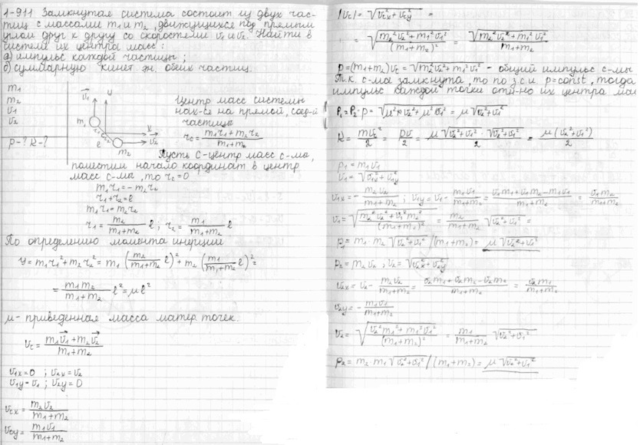 1-911 Замкнутая система состоит из двух час-
тиц с массами m₁ и m₂, движущихся под прямым
углом друг к другу со скоростями v₁ и v₂. Найти в
системе их центра масс:
а) импульс каждой частицы;
б) суммарную кинет эн. обеих частиц.
m₁
m₂
v₁
v₂
P-? K-?
Центр масс системы
нах-ся на прямой, соед-й
частицы
r_c = (m₁r₁+m₂r₂)/(m₁+m₂)
Пусть C-центр масс с-мы,
поместим начало координат в центр
масс с-мы, то r_c=0
m₁r₁=-m₂r₂
r₁+r₂=ℓ
m₁r₁=m₂r₂
r₁ = m₂/(m₁+m₂) ℓ ; r₂ = m₁/(m₁+m₂) ℓ
По определению момента инерции
J = m₁r₁²+m₂r₂² = m₁(m₂/(m₁+m₂) ℓ)²+m₂(m₁/(m₁+m₂) ℓ)²=
= m₁m₂/(m₁+m₂) ℓ²=μℓ²
μ- приведенная масса матер точек:
v_c = (m₁v₁+m₂v₂)/(m₁+m₂)
v₁x=0 ; v₂x=v₂
v₁y=v₁ ; v₂y=0
v_cx = m₂v₂/(m₁+m₂)
v_cy = m₁v₁/(m₁+m₂)
|v_c| = √(v_cx²+v_cy²) =
= √((m₂²v₂²+m₁²v₁²)/(m₁+m₂)²) = √(m₂²v₂²+m₁²v₁²)/(m₁+m₂)
p=(m₁+m₂)v_c=√(m₂²v₂²+m₁²v₁²) - общий импульс с-мы
Т.к. с-ма замкнута, то по з.с.и p=const, тогда
импульс каждой точки отн-но их центра мас
P₁=P₂=p = √(μ²v₂²+μ²v₁²) = μ√(v₂²+v₁²)
K = mv²/2 = pv/2 = μ√(v₂²+v₁²)·√(v₂²+v₁²)/2 = μ(v₂²+v₁²)/2
p₁=m₁v₁
v₁=√(v₁x²+v₁y²)
v₁x=-m₂v₂/(m₁+m₂) ; v₁y=v₁-m₁v₁/(m₁+m₂) = (v₁m₁+v₁m₂-m₁v₁)/(m₁+m₂) = v₁m₂/(m₁+m₂)
v₁=√((m₂²v₂²+v₁²m₂²)/(m₁+m₂)²) = m₂/(m₁+m₂) √(v₂²+v₁²) =
p₁=m₁·m₂√(v₂²+v₁²)/(m₁+m₂)=μ√(v₂²+v₁²)
p₂=m₂v₂ ; v₂=√(v₂x²+v₂y²)
v₂x=v₂-m₂v₂/(m₁+m₂) = (v₂m₁+v₂m₂-v₂m₂)/(m₁+m₂) = v₂m₁/(m₁+m₂)
v₂y=-m₁v₁/(m₁+m₂)
v₂=√((v₂²m₁²+m₁²v₁²)/(m₁+m₂)²) = m₁/(m₁+m₂) √(v₂²+v₁²)
p₂=m₂·m₁√(v₂²+v₁²)/(m₁+m₂)=μ√(v₂²+v₁²)